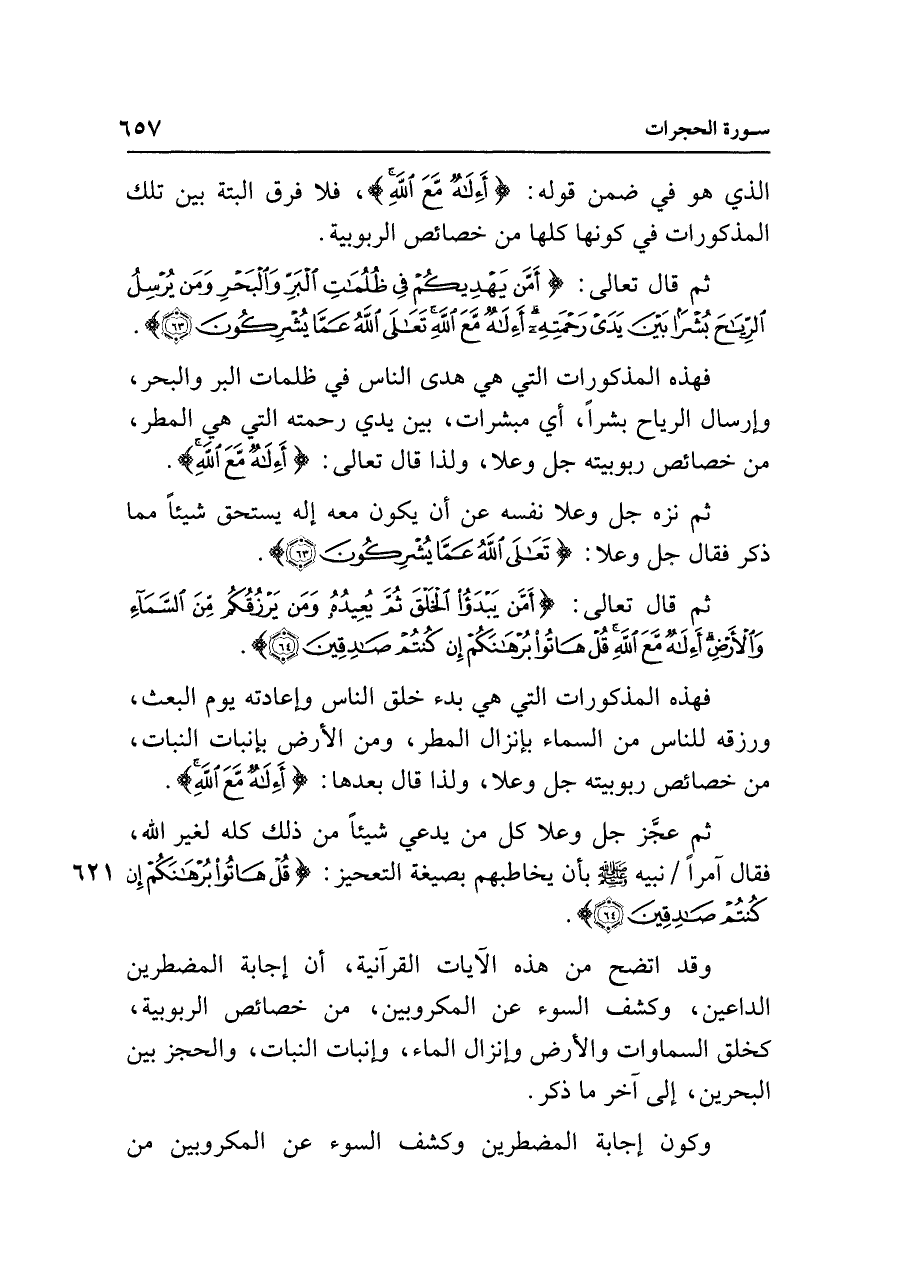 سورة الحجرات ٦٥٧
الذي هو في ضمن قوله: ﴿أَءِلَٰهٌ مَّعَ ٱللَّهِۚ﴾، فلا فرق البتة بين تلك
المذكورات في كونها كلها من خصائص الربوبية.
ثم قال تعالى: ﴿أَمَّن يَهْدِيكُمْ فِى ظُلُمَٰتِ ٱلْبَرِّ وَٱلْبَحْرِ وَمَن يُرْسِلُ
ٱلرِّيَٰحَ بُشْرًۢا بَيْنَ يَدَىْ رَحْمَتِهِۦٓۗ أَءِلَٰهٌ مَّعَ ٱللَّهِۚ تَعَٰلَى ٱللَّهُ عَمَّا يُشْرِكُونَ ٦٣﴾.
فهذه المذكورات التي هي هدى الناس في ظلمات البر والبحر،
وإرسال الرياح بشراً، أي مبشرات، بين يدي رحمته التي هي المطر،
من خصائص ربوبيته جل وعلا، ولذا قال تعالى: ﴿أَءِلَٰهٌ مَّعَ ٱللَّهِۚ﴾.
ثم نزه جل وعلا نفسه عن أن يكون معه إله يستحق شيئاً مما
ذكر فقال جل وعلا: ﴿تَعَٰلَى ٱللَّهُ عَمَّا يُشْرِكُونَ ٦٣﴾.
ثم قال تعالى: ﴿أَمَّن يَبْدَؤُا۟ ٱلْخَلْقَ ثُمَّ يُعِيدُهُۥ وَمَن يَرْزُقُكُم مِّنَ ٱلسَّمَآءِ
وَٱلْأَرْضِۗ أَءِلَٰهٌ مَّعَ ٱللَّهِۚ قُلْ هَاتُوا۟ بُرْهَٰنَكُمْ إِن كُنتُمْ صَٰدِقِينَ ٦٤﴾.
فهذه المذكورات التي هي بدء خلق الناس وإعادته يوم البعث،
ورزقه للناس من السماء بإنزال المطر، ومن الأرض بإنبات النبات،
من خصائص ربوبيته جل وعلا، ولذا قال بعدها: ﴿أَءِلَٰهٌ مَّعَ ٱللَّهِۚ﴾.
ثم عجَّز جل وعلا كل من يدعي شيئاً من ذلك كله لغير الله،
فقال آمراً / نبيه ﷺ بأن يخاطبهم بصيغة التعحيز: ﴿قُلْ هَاتُوا۟ بُرْهَٰنَكُمْ إِن ٦٢١
كُنتُمْ صَٰدِقِينَ ٦٤﴾.
وقد اتضح من هذه الآيات القرآنية، أن إجابة المضطرين
الداعين، وكشف السوء عن المكروبين، من خصائص الربوبية،
كخلق السماوات والأرض وإنزال الماء، وإنبات النبات، والحجز بين
البحرين، إلى آخر ما ذكر.
وكون إجابة المضطرين وكشف السوء عن المكروبين من